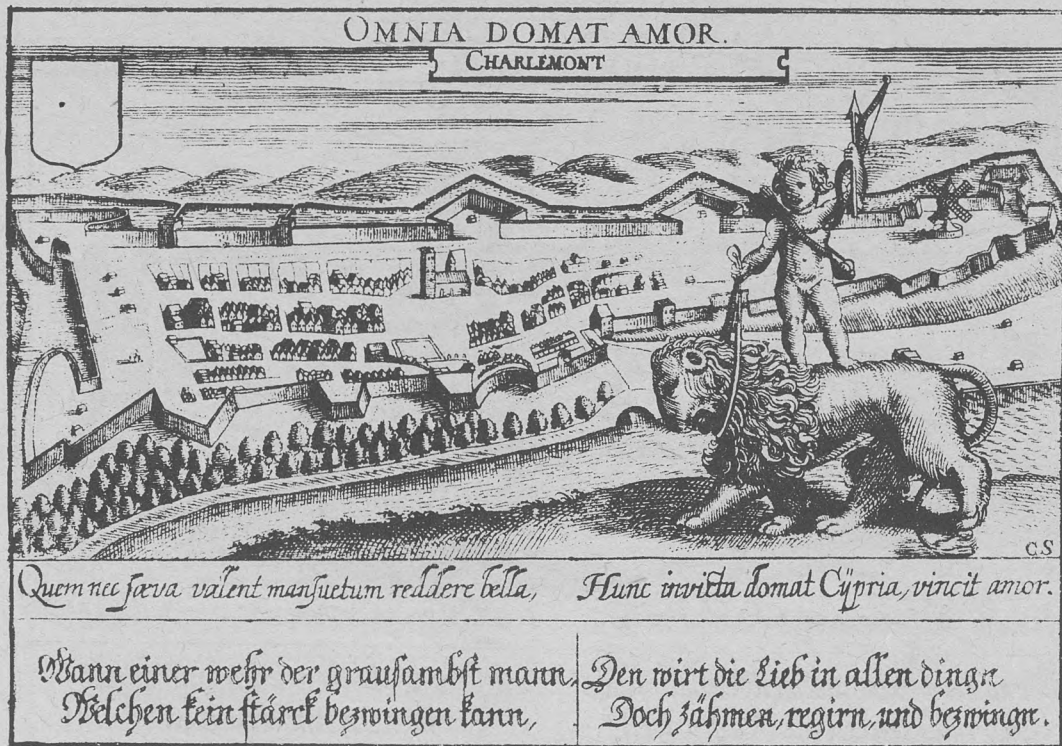 OMNIA DOMAT AMOR.
CHARLEMONT
CS
Quem nec sæva valent mansuetum reddere bella,
Hunc invicta domat Cÿpria, vincit amor.
Wann einer wehr der grausambst mann,
Welchen kein stärck bezwingen kann,
Den wirt die Lieb in allen dingn
Doch zähmen, regirn, und bezwingn.